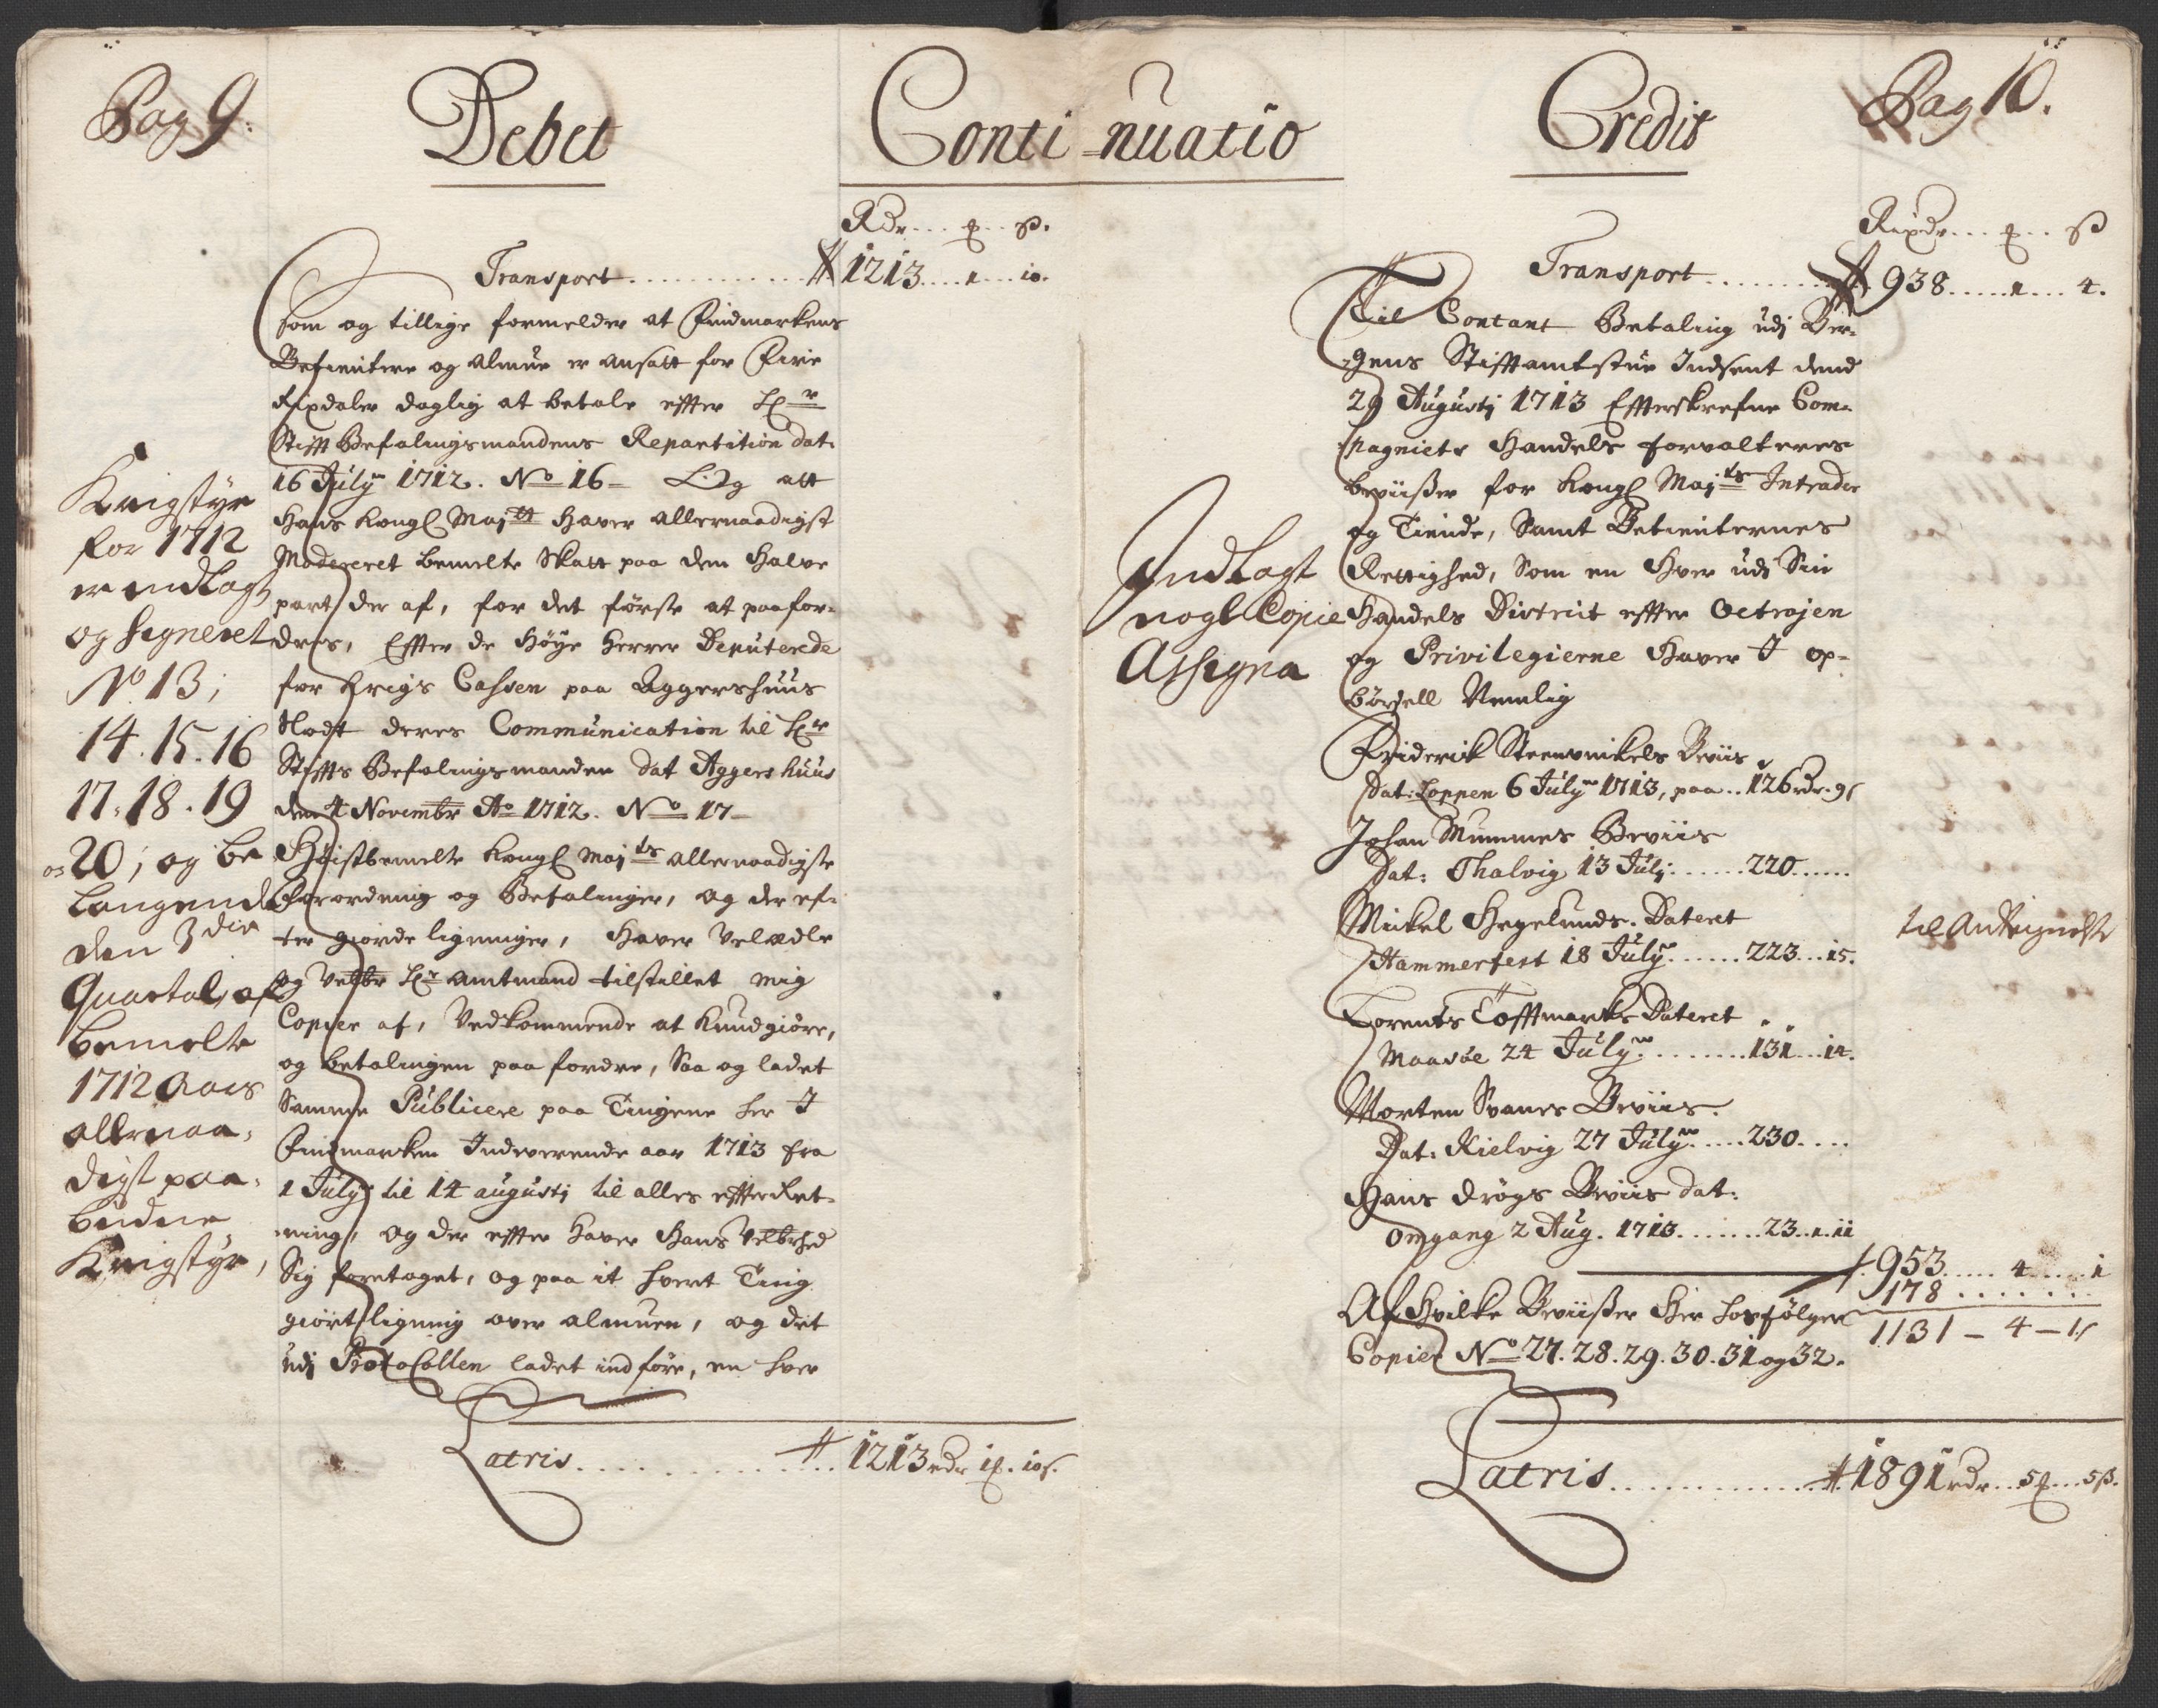 Pag 9.
Debet
Continuatio
Rdr ... ₰ .. ß.
Transport ............ # 1213 .... 1 ... 10.
som og tillige formelder at Findmarkens
Betientere og Almue er ansatt for Fire
Rixdaler daglig at betale effter Hr
Stifft Befalingsmandens Repartition dat.
16 July 1712. No 16 – Og att
Hans Kongl Maytt haver allernaadigst
Modereret bemelte Skatt paa dem Halve
part der af, for det første at paafor-
dres, Effter de Høye Herrer Deputerede
for Krigs Cassen paa Aggershuus
Næst deres Communication til Hr
Stiffts Befalingsmanden dat Aggershuus
den 4 Novembr Ao 1712. No 17 –
Høistbemelte Kongl Mayts allernaadigste
Forordning og Befalinger, og der ef-
ter giorde ligninger, haver Velædle
og Velbr Hr Amtmand tilstillet mig
Copier af, Vedkommende at Kundgiøre,
og betalingen paa fordre, Saa og ladet
Samme Publicere paa Tingene her I
Findmarken Indeverende aar 1713 fra
1 July til 14 augusti til alles effterRet-
ning, og der effter haver Hans Velbrhed
Sig foretaget, og paa it hvert Ting
giort ligning over almuen, og det
udi Protocollen ladet indføre, en hver
Latris .............. # 1213 rdr 1₰. 10ß.
Krigstyr
for 1712
er indlagt
og signeret
No 13;
14. 15. 16
17. 18. 19
20; og be
langende
den 3die
Quartal af
bemelte
1712 Aars
allernaa-
digst paa-
budne
Krigstyr,
Credit
Pag 10.
Rixdr ... ₰ ... ß
Transport ......... # 938 ..... 1 ... 4.
Til Contant Betaling udi Ber-
gens Stifftamtstue Indsent dend
29 Augusti 1713 Effterskrefne Com-
pagniets Handels forvalteres
beviisser for Kongl Mayts Intrader
og Tiende, Samt Betienternes
Rettighed, Som en Hver udi Sin
Handels District effter Octrojen
og Privilegierne Haver I op-
børsell Nemlig
Friderik Steenvinkels Beviis
Dat: Loppen 6 July 1713, paa .. 126 rdr. 9ß
Johan Mummes Beviis
Dat: Thalvig 13 Julj ...... 220 ......
Mickel Hegelunds. Dateret
Hammerfest 18 July ...... 223 ... 15.
Lorents Tofftmarks Dateret
Maasøe 24 July ........ 131 ... 14.
Morten Svanes Beviis.
Dat: Kielvig 27 July ..... 230 ....
Hans Drøgs Beviis dat:
Omgang 2 Aug. 1713 ....... 23 .. 1. 11
953 ..... 4 ..... 1
178 .......
1131 – 4 – 1ß
Af Hvilke Beviisser Her hosfølger
Copier No 27. 28. 29. 30. 31 og 32.
Latris ............ # 1891 rdr .. 5₰ ... 5ß.
Indlagt
nogle Copie
Assigna
til Antegnelse